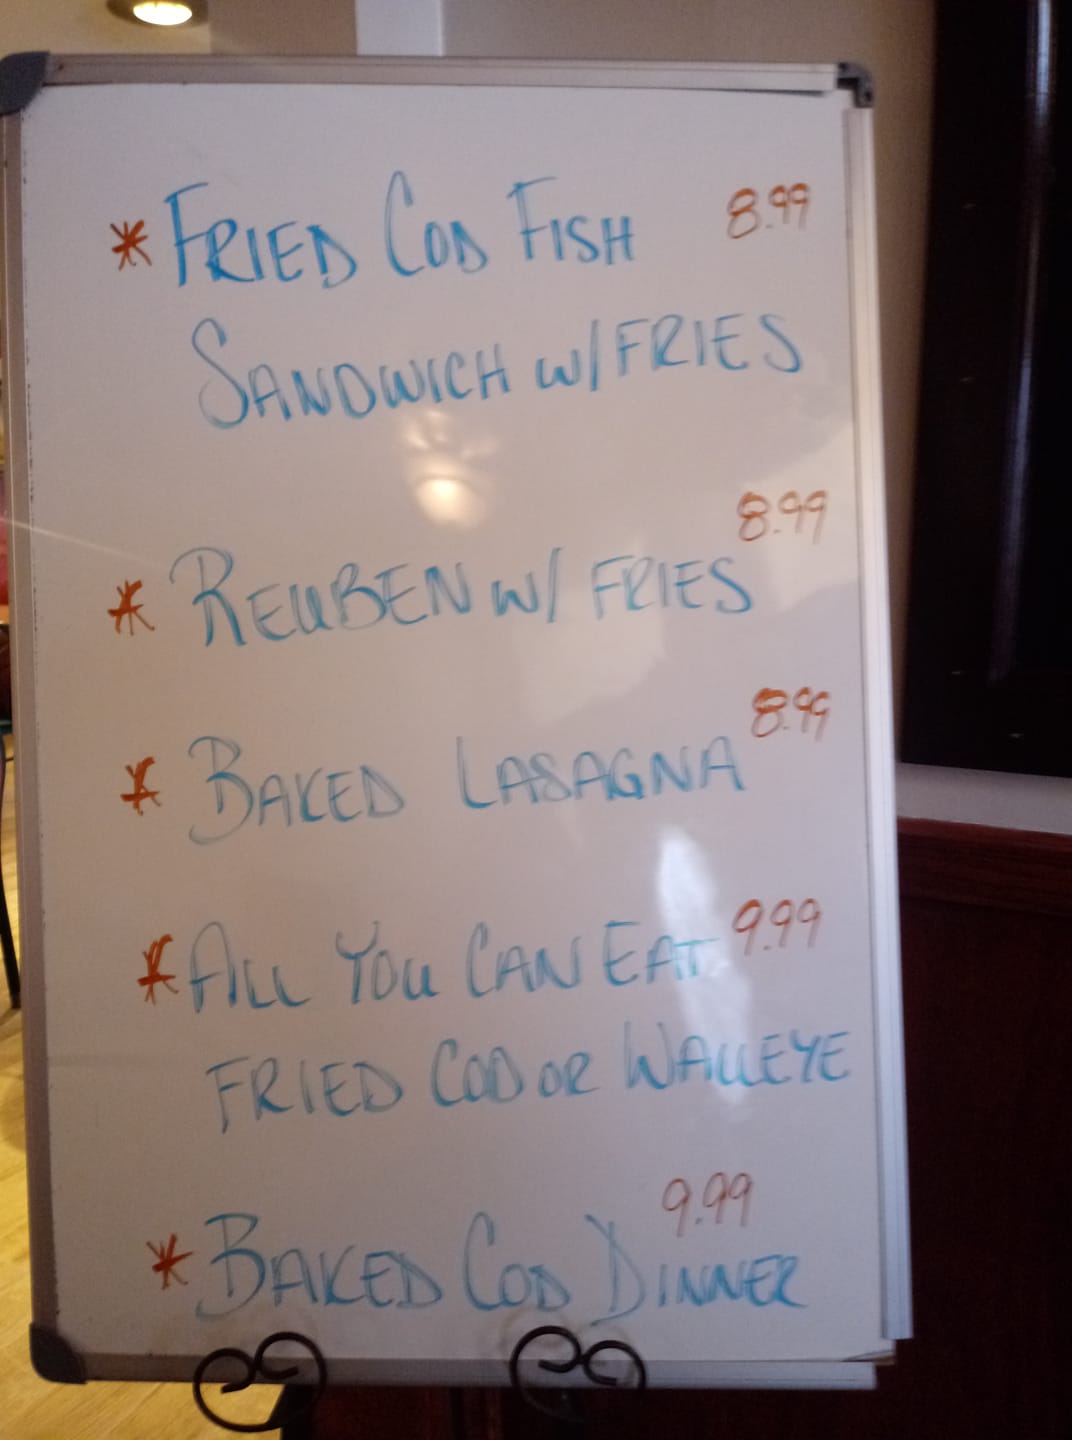 * FRIED COD FISH 8.99
SANDWICH W/ FRIES
8.99
* REUBEN W/ FRIES
8.99
* BAKED LASAGNA
* ALL YOU CAN EAT 9.99
FRIED COD OR WALLEYE
9.99
* BAKED COD DINNER